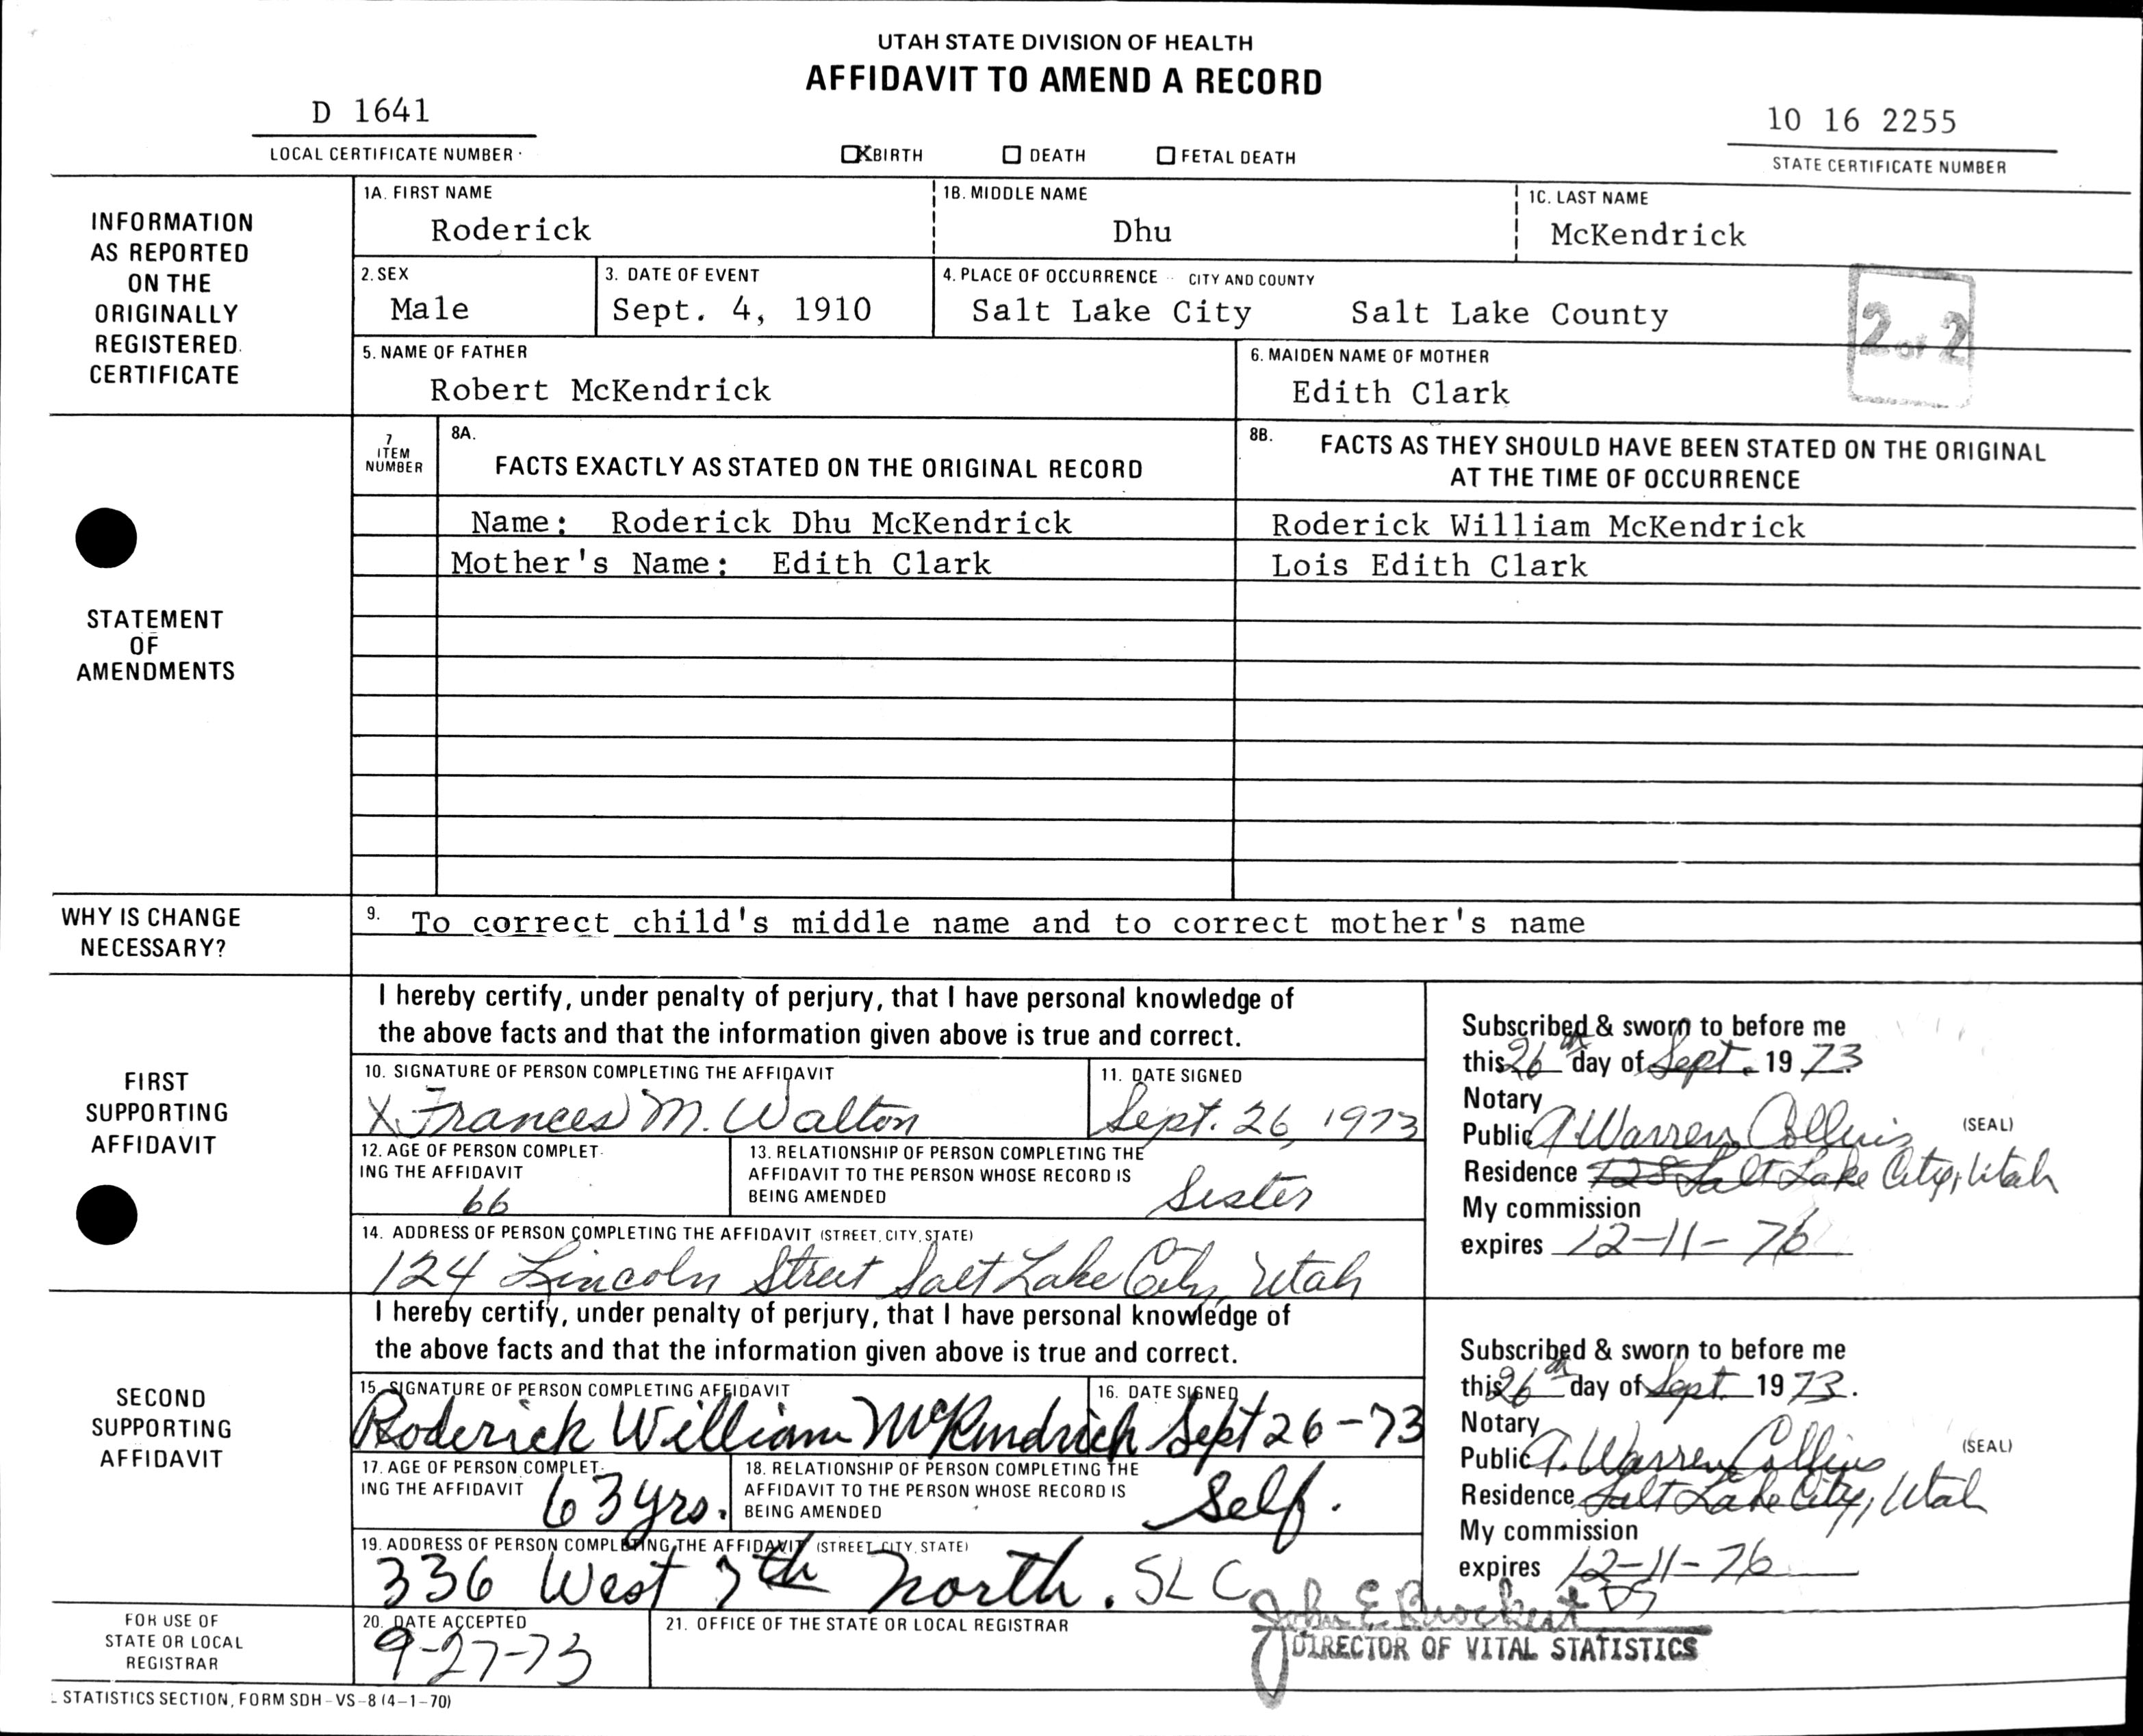 UTAH STATE DIVISION OF HEALTH
AFFIDAVIT TO AMEND A RECORD
D 1641
LOCAL CERTIFICATE NUMBER
X BIRTH DEATH FETAL DEATH
10 16 2255
STATE CERTIFICATE NUMBER
INFORMATION
AS REPORTED
ON THE
ORIGINALLY
REGISTERED
CERTIFICATE
1A. FIRST NAME
Roderick
1B. MIDDLE NAME
Dhu
1C. LAST NAME
McKendrick
2. SEX
Male
3. DATE OF EVENT
Sept. 4, 1910
4. PLACE OF OCCURRENCE CITY AND COUNTY
Salt Lake City Salt Lake County
2 of 2
5. NAME OF FATHER
Robert McKendrick
6. MAIDEN NAME OF MOTHER
Edith Clark
STATEMENT
OF
AMENDMENTS
7
ITEM
NUMBER
8A.
FACTS EXACTLY AS STATED ON THE ORIGINAL RECORD
8B. FACTS AS THEY SHOULD HAVE BEEN STATED ON THE ORIGINAL
AT THE TIME OF OCCURRENCE
Name: Roderick Dhu McKendrick
Roderick William McKendrick
Mother's Name: Edith Clark
Lois Edith Clark
WHY IS CHANGE
NECESSARY?
9. To correct child's middle name and to correct mother's name
FIRST
SUPPORTING
AFFIDAVIT
I hereby certify, under penalty of perjury, that I have personal knowledge of
the above facts and that the information given above is true and correct.
10. SIGNATURE OF PERSON COMPLETING THE AFFIDAVIT
X Frances M. Walton
11. DATE SIGNED
Sept. 26, 1973
12. AGE OF PERSON COMPLET-
ING THE AFFIDAVIT
66
13. RELATIONSHIP OF PERSON COMPLETING THE
AFFIDAVIT TO THE PERSON WHOSE RECORD IS
BEING AMENDED
Sister
14. ADDRESS OF PERSON COMPLETING THE AFFIDAVIT (STREET, CITY, STATE)
124 Lincoln Street Salt Lake City, Utah
Subscribed & sworn to before me
this 26th day of Sept. 19 73
Notary
Public A. Warren Collins (SEAL)
Residence Salt Lake City, Utah
My commission
expires 12-11-76
SECOND
SUPPORTING
AFFIDAVIT
I hereby certify, under penalty of perjury, that I have personal knowledge of
the above facts and that the information given above is true and correct.
15. SIGNATURE OF PERSON COMPLETING AFFIDAVIT
Roderick William McKendrick
16. DATE SIGNED
Sept 26-73
17. AGE OF PERSON COMPLET-
ING THE AFFIDAVIT
63 yrs.
18. RELATIONSHIP OF PERSON COMPLETING THE
AFFIDAVIT TO THE PERSON WHOSE RECORD IS
BEING AMENDED
Self.
19. ADDRESS OF PERSON COMPLETING THE AFFIDAVIT (STREET, CITY, STATE)
336 West 7th North. SLC
Subscribed & sworn to before me
this 26th day of Sept. 19 73.
Notary
Public A. Warren Collins (SEAL)
Residence Salt Lake City, Utah
My commission
expires 12-11-76
FOR USE OF
STATE OR LOCAL
REGISTRAR
20. DATE ACCEPTED
9-27-73
21. OFFICE OF THE STATE OR LOCAL REGISTRAR
John E. Brockert
DIRECTOR OF VITAL STATISTICS
STATISTICS SECTION, FORM SDH-VS-8 (4-1-70)